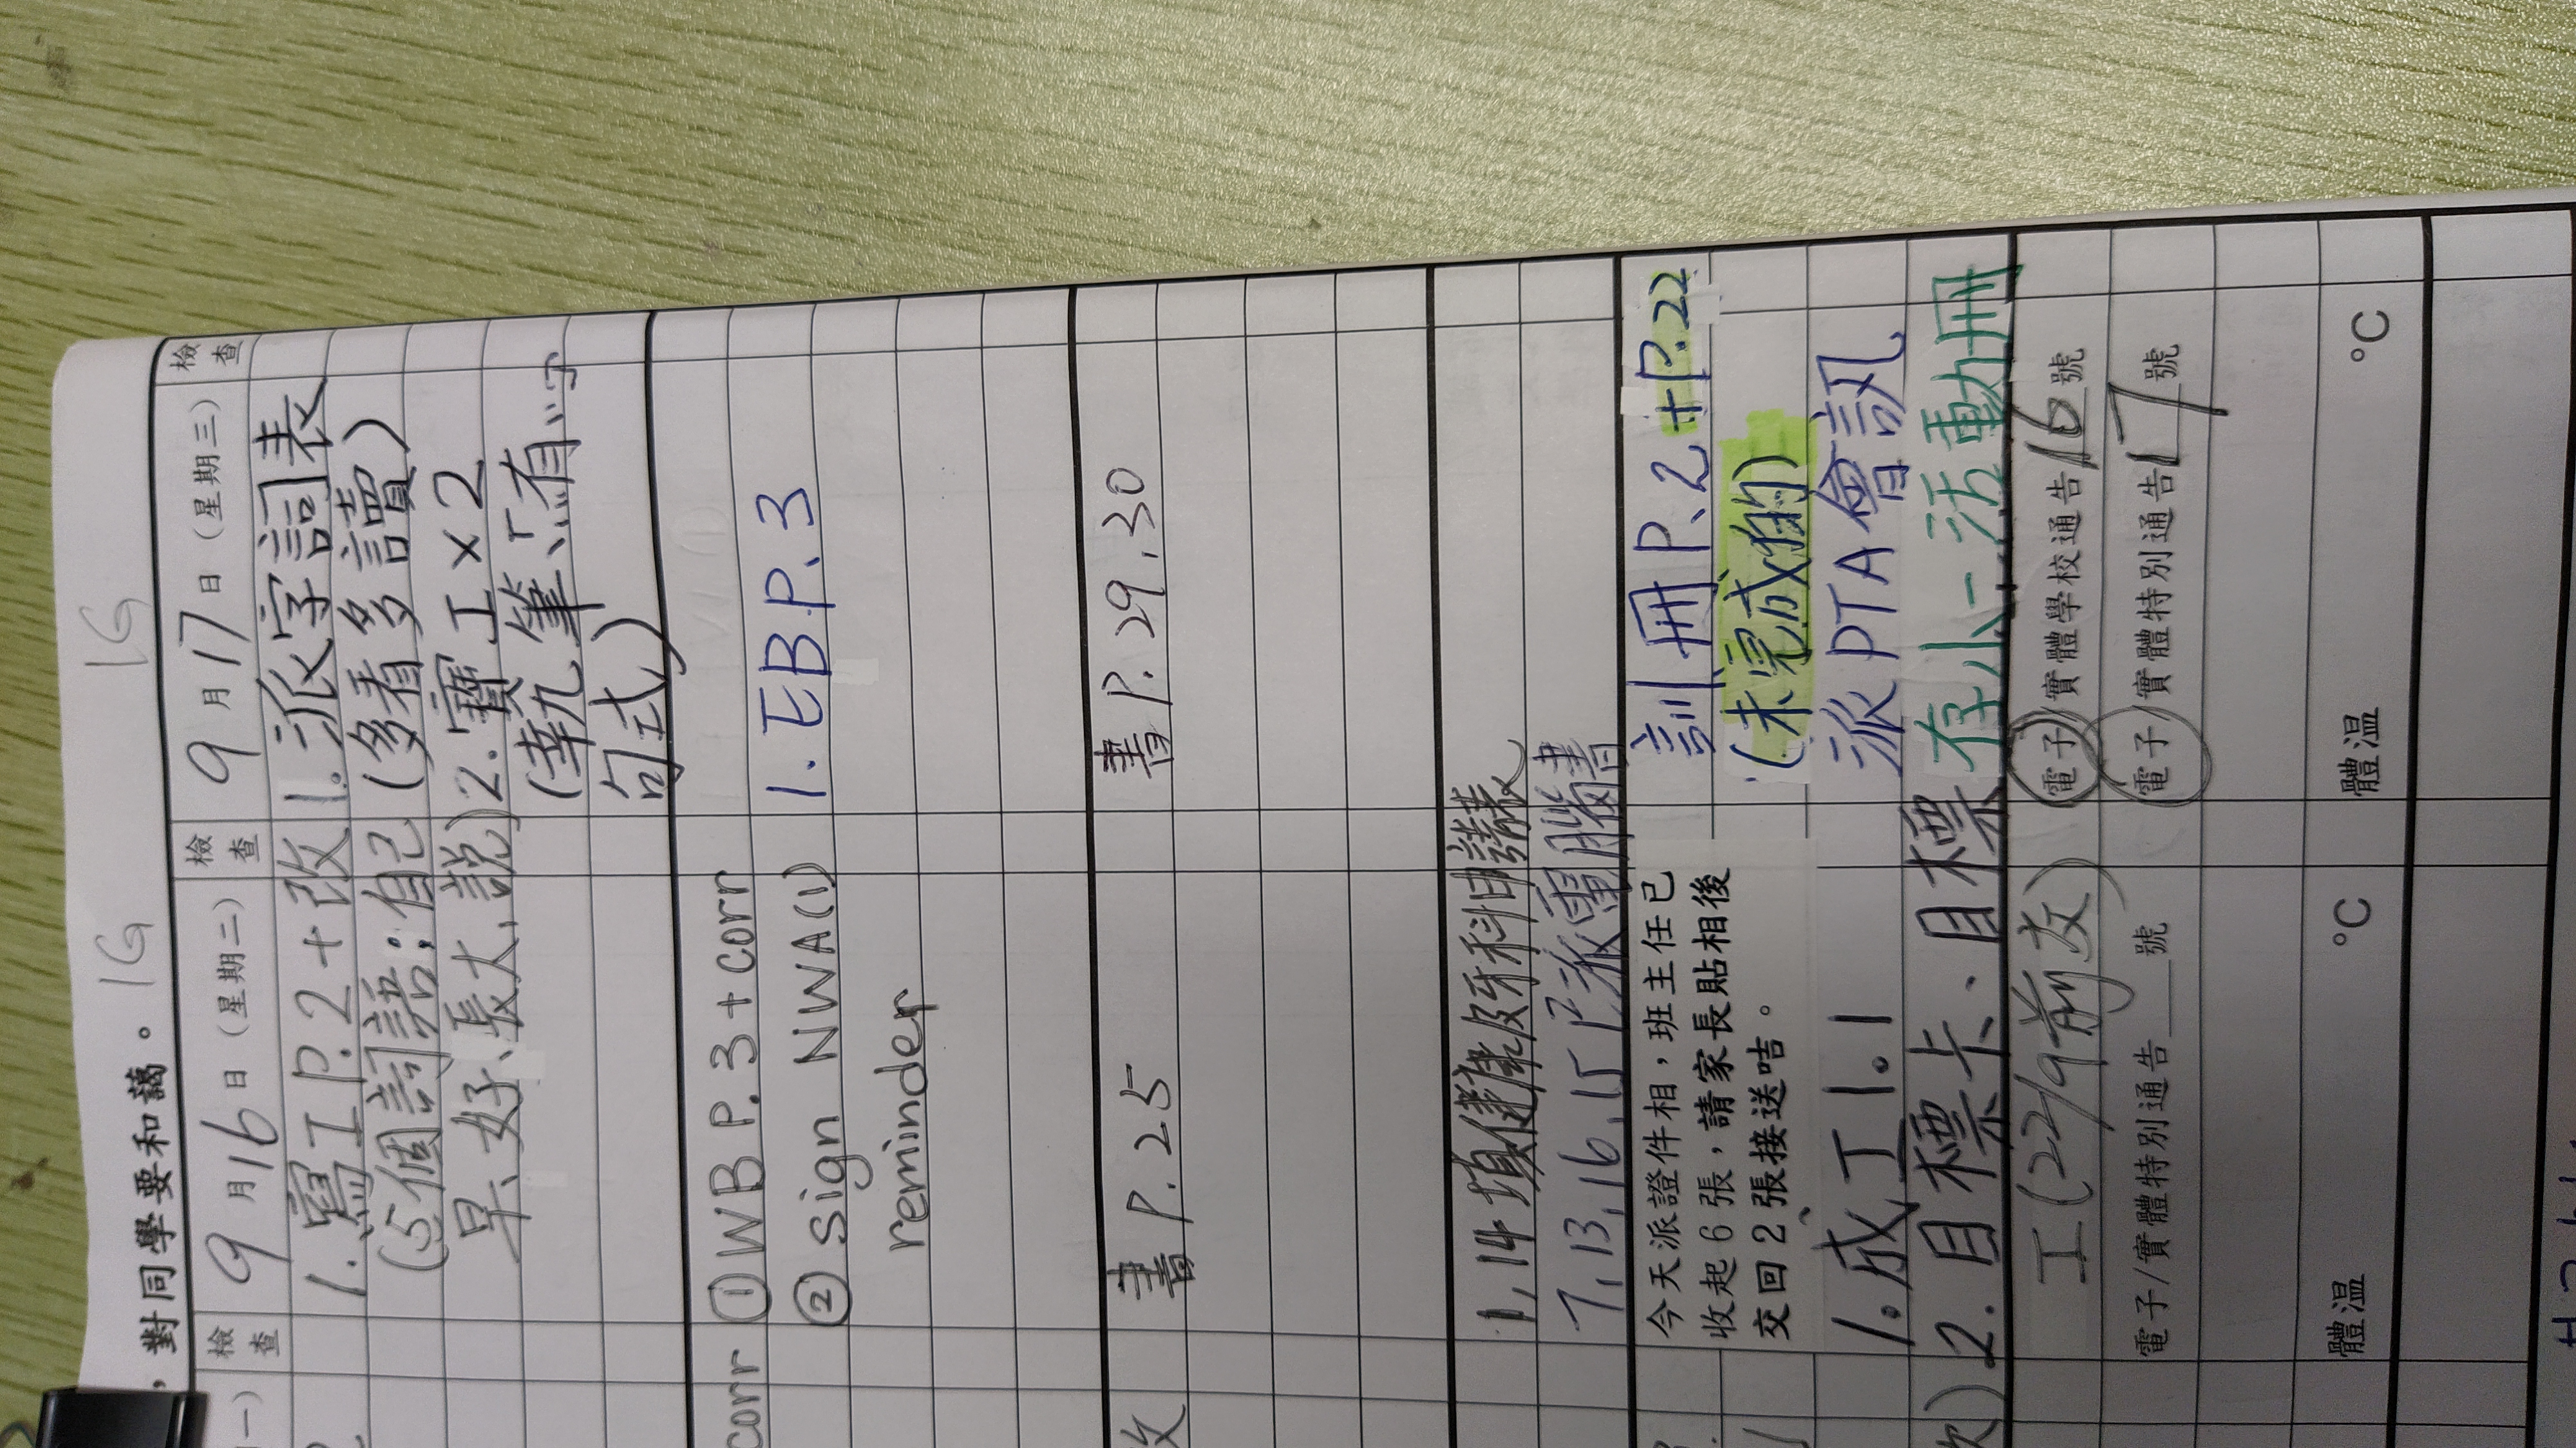 ，對同學要和藹。
1G
1G
檢查
9月16日（星期二）
檢查
9月17日（星期三）
檢查
1. 寫工P.2+改
(5個詞語：自己
早、好、長大、說)
1. 派字詞表
(多看多讀)
2. 寶工×2
(執筆、「有…」
句式)
corr
① WB P.3+corr
② sign NWA(1)
reminder
1. EB P.3
改
書P.25
書P.29.30
7,13,16,15已派電腦書
今天派證件相，班主任已
收起6張，請家長貼相後
交回2張接送咭。
1. 成工1.1
2. 目標卡、目標
訓冊P.2+P.22
(未完成的)
派PTA會訊
存小一活動冊
工(22/9前交)
電子/實體特別通告___號
電子/實體學校通告16號
電子/實體特別通告17號
體溫 °C
體溫 °C